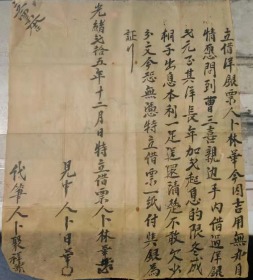 立借洋銀票人卜林華今因吉用無如自
情愿問到曹三喜親边手內借過洋銀
戈元正其洋長年加弍起息約限冬成
桐子出息本利一足還清楚不敢欠少
分文今恐無憑特立借票一紙付與為
証
光緒拾五年十二月日特立借票人卜林華
見中人卜日
代筆人卜